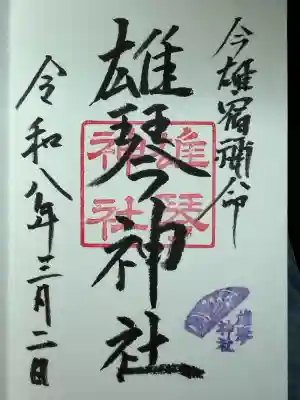 今雄宿禰命
雄琴神社
雄琴神社
雄琴神社
令和八年三月二日